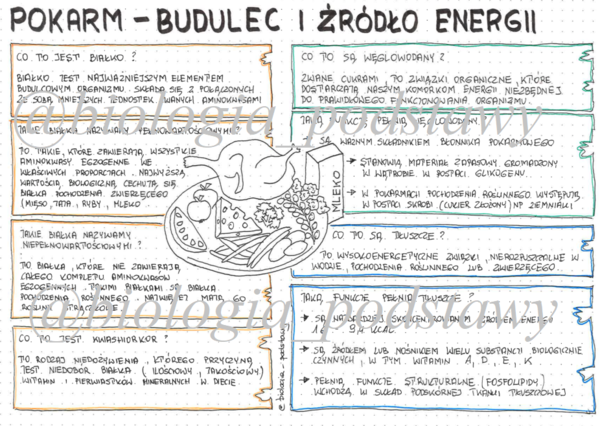 POKARM - BUDULEC I ŹRÓDŁO ENERGII
CO TO JEST BIAŁKO?
BIAŁKO JEST NAJWAŻNIEJSZYM ELEMENTEM
BUDULCOWYM ORGANIZMU. SKŁADA SIĘ Z POŁĄCZONYCH
ZE SOBĄ MNIEJSZYCH JEDNOSTEK ZWANYCH AMINOKWASAMI
JAKIE BIAŁKA NAZYWAMY PEŁNOWARTOŚCIOWYMI?
TO TAKIE, KTÓRE ZAWIERAJĄ WSZYSTKIE
AMINOKWASY EGZOGENNE WE
WŁAŚCIWYCH PROPORCJACH. NAJWYŻSZĄ
WARTOŚCIĄ BIOLOGICZNĄ CECHUJĄ SIĘ
BIAŁKA POCHODZENIA ZWIERZĘCEGO
(MIĘSO, JAJA, RYBY, MLEKO
JAKIE BIAŁKA NAZYWAMY
NIEPEŁNOWARTOŚCIOWYMI?
TO BIAŁKA, KTÓRE NIE ZAWIERAJĄ
CAŁEGO KOMPLETU AMINOKWASÓW
EGZOGENNYCH. TAKIMI BIAŁKAMI SĄ BIAŁKA
POCHODZENIA ROŚLINNEGO. NAJWIĘCEJ MAJĄ GO
ROŚLINY STRĄCZKOWE.
CO TO JEST KWASHIORKOR?
TO RODZAJ NIEDOŻYWIENIA, KTÓREGO PRZYCZYNĄ
JEST NIEDOBÓR BIAŁKA (ILOŚCIOWY, JAKOŚCIOWY)
WITAMIN I PIERWIASTKÓW MINERALNYCH W DIECIE
MLEKO
CO TO SĄ WĘGLOWODANY?
ZWANE CUKRAMI, TO ZWIĄZKI ORGANICZNE, KTÓRE
DOSTARCZAJĄ NASZYM KOMÓRKOM ENERGII NIEZBĘDNEJ
DO PRAWIDŁOWEGO FUNKCJONOWANIA ORGANIZMU.
JAKĄ FUNKCJĘ PEŁNIĄ WĘGLOWODANY?
SĄ WAŻNYM SKŁADNIKIEM BŁONNIKA POKARMOWEGO
→ STANOWIĄ MATERIAŁ ZAPASOWY GROMADZONY
W WĄTROBIE W POSTACI GLIKOGENU.
→ W POKARMACH POCHODZENIA ROŚLINNEGO WYSTĘPUJĄ
W POSTACI SKROBI (CUKIER ZŁOŻONY) NP ZIEMNIAKI
CO TO SĄ TŁUSZCZE?
TO WYSOKOENERGETYCZNE ZWIĄZKI, NIEROZPUSZCZALNE W
WODZIE, POCHODZENIA ROŚLINNEGO LUB ZWIERZĘCEGO.
JAKĄ FUNKCJĘ PEŁNIĄ TŁUSZCZE?
→ SĄ NAJBARDZIEJ SKONCENTROWANYM ŹRÓDŁEM ENERGII
9,4 KCAL
→ SĄ ŹRÓDŁEM LUB NOŚNIKIEM WIELU SUBSTANCJI BIOLOGICZNIE
CZYNNYCH, W TYM WITAMIN A, D, E, K
→ PEŁNIĄ FUNKCJE STRUKTURALNE (FOSFOLIPIDY)
WCHODZĄ W SKŁAD PODSKÓRNEJ TKANKI TŁUSZCZOWEJ
@biologia_podstawy
@biologia podstawy
@biologia podstawy